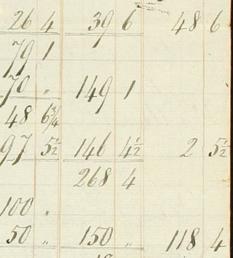 26 4 39 6 48 6
79 1
70 " 149 1
48 6¾
97 5½ 146 4½ 2 5½
268 4
100 "
50 " 150 " 118 4